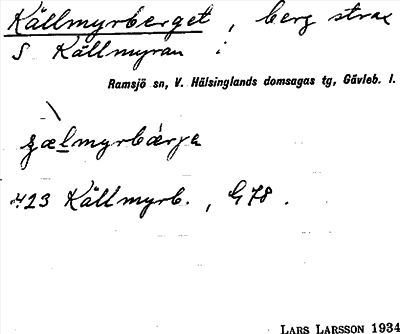 Källmyrberget, berg strax
S Källmyran i
Ramsjö sn, V. Hälsinglands domsagas tg, Gävleb. l.
ȥælmyrbærja
423 Källmyrb., G78.
LARS LARSSON 1934